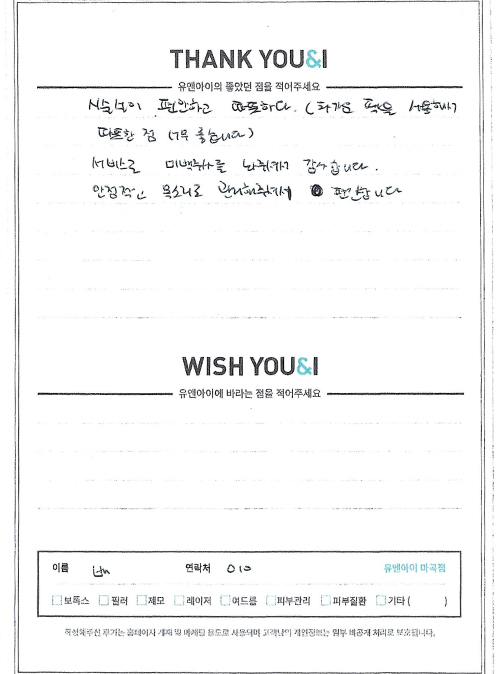 THANK YOU&I
유앤아이의 좋았던 점을 적어주세요
시술실이 편안하고 따뜻하다. (차가운 팩을 사용해서
따뜻한 점 너무 좋습니다)
서비스로 미백주사를 놔줘서 감사합니다.
안정적인 목소리로 관리해주셔서 편안합니다
WISH YOU&I
유앤아이에 바라는 점을 적어주세요
이름 연락처 010 유앤아이 마곡점
보톡스 필러 제모 레이저 여드름 피부관리 피부질환 기타 ( )
작성해주신 후기는 홈페이지 게재 및 마케팅 용도로 사용되며 고객님의 개인정보는 일부 비공개 처리로 보호됩니다.